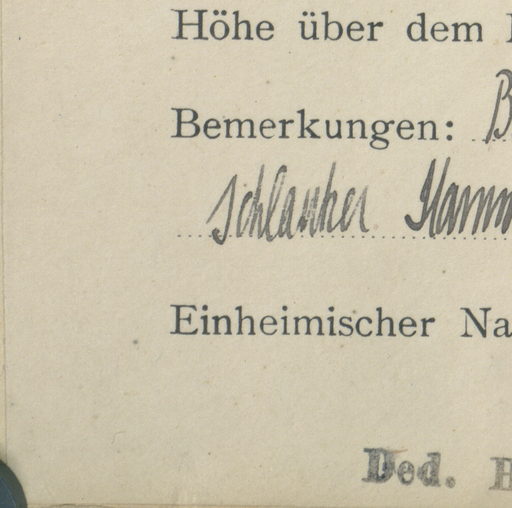 Höhe über dem
Bemerkungen: B
schlanker Stamm
Einheimischer Na
Ded.